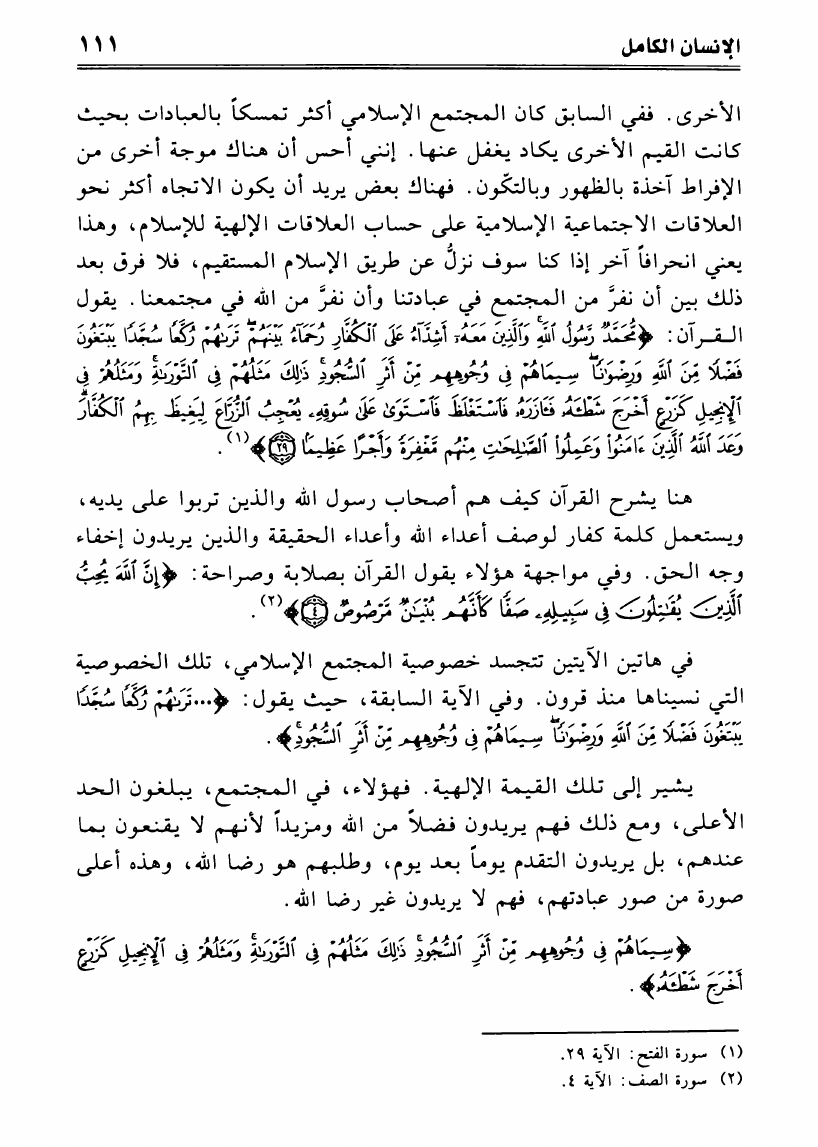 الإنسان الكامل ١١١
الأخرى. ففي السابق كان المجتمع الإسلامي أكثر تمسكاً بالعبادات بحيث
كانت القيم الأخرى يكاد يغفل عنها. إنني أحس أن هناك موجة أخرى من
الإفراط آخذة بالظهور وبالتكّون. فهناك بعض يريد أن يكون الاتجاه أكثر نحو
العلاقات الاجتماعية الإسلامية على حساب العلاقات الإلهية للإسلام، وهذا
يعني انحرافاً آخر إذا كنا سوف نزلُّ عن طريق الإسلام المستقيم، فلا فرق بعد
ذلك بين أن نفرَّ من المجتمع في عبادتنا وأن نفرَّ من الله في مجتمعنا. يقول
القرآن: ﴿مُّحَمَّدٌ رَّسُولُ ٱللَّهِۚ وَٱلَّذِينَ مَعَهُۥٓ أَشِدَّآءُ عَلَى ٱلۡكُفَّارِ رُحَمَآءُ بَيۡنَهُمۡۖ تَرَىٰهُمۡ رُكَّعٗا سُجَّدٗا يَبۡتَغُونَ
فَضۡلٗا مِّنَ ٱللَّهِ وَرِضۡوَٰنٗاۖ سِيمَاهُمۡ فِي وُجُوهِهِم مِّنۡ أَثَرِ ٱلسُّجُودِۚ ذَٰلِكَ مَثَلُهُمۡ فِي ٱلتَّوۡرَىٰةِۚ وَمَثَلُهُمۡ فِي
ٱلۡإِنجِيلِ كَزَرۡعٍ أَخۡرَجَ شَطۡـَٔهُۥ فَـَٔازَرَهُۥ فَٱسۡتَغۡلَظَ فَٱسۡتَوَىٰ عَلَىٰ سُوقِهِۦ يُعۡجِبُ ٱلزُّرَّاعَ لِيَغِيظَ بِهِمُ ٱلۡكُفَّارَۗ
وَعَدَ ٱللَّهُ ٱلَّذِينَ ءَامَنُواْ وَعَمِلُواْ ٱلصَّٰلِحَٰتِ مِنۡهُم مَّغۡفِرَةٗ وَأَجۡرًا عَظِيمَۢا ٢٩﴾(١).
هنا يشرح القرآن كيف هم أصحاب رسول الله والذين تربوا على يديه،
ويستعمل كلمة كفار لوصف أعداء الله وأعداء الحقيقة والذين يريدون إخفاء
وجه الحق. وفي مواجهة هؤلاء يقول القرآن بصلابة وصراحة: ﴿إِنَّ ٱللَّهَ يُحِبُّ
ٱلَّذِينَ يُقَٰتِلُونَ فِي سَبِيلِهِۦ صَفّٗا كَأَنَّهُم بُنۡيَٰنٞ مَّرۡصُوصٞ ٤﴾(٢).
في هاتين الآيتين تتجسد خصوصية المجتمع الإسلامي، تلك الخصوصية
التي نسيناها منذ قرون. وفي الآية السابقة، حيث يقول: ﴿...تَرَىٰهُمۡ رُكَّعٗا سُجَّدٗا
يَبۡتَغُونَ فَضۡلٗا مِّنَ ٱللَّهِ وَرِضۡوَٰنٗاۖ سِيمَاهُمۡ فِي وُجُوهِهِم مِّنۡ أَثَرِ ٱلسُّجُودِۚ﴾.
يشير إلى تلك القيمة الإلهية. فهؤلاء، في المجتمع، يبلغون الحد
الأعلى، ومع ذلك فهم يريدون فضلاً من الله ومزيداً لأنهم لا يقنعون بما
عندهم، بل يريدون التقدم يوماً بعد يوم، وطلبهم هو رضا الله، وهذه أعلى
صورة من صور عبادتهم، فهم لا يريدون غير رضا الله.
﴿سِيمَاهُمۡ فِي وُجُوهِهِم مِّنۡ أَثَرِ ٱلسُّجُودِۚ ذَٰلِكَ مَثَلُهُمۡ فِي ٱلتَّوۡرَىٰةِۚ وَمَثَلُهُمۡ فِي ٱلۡإِنجِيلِ كَزَرۡعٍ
أَخۡرَجَ شَطۡـَٔهُۥ﴾.
(١) سورة الفتح: الآية ٢٩.
(٢) سورة الصف: الآية ٤.